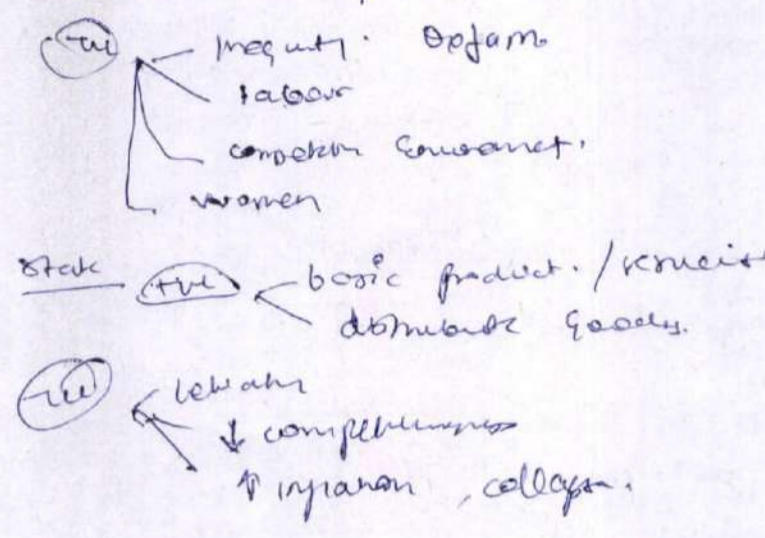 -ve inequality. Oxfam
labour
competition environment.
women
state +ve basic product. / services
distribute goods.
-ve
↓ competitiveness
↑ inflation, collapse.